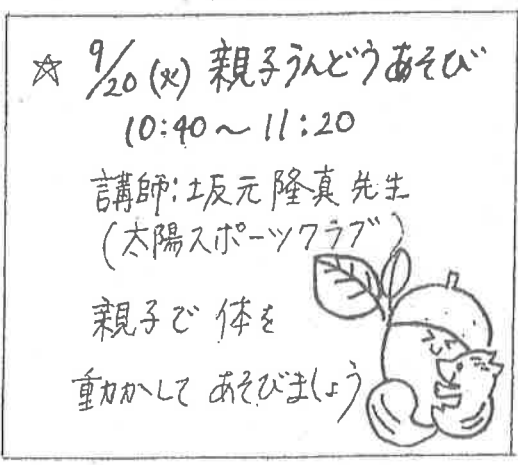 ☆ 9/20(火) 親子うんどうあそび
10:40〜11:20
講師:坂元隆真先生
(太陽スポーツクラブ)
親子で体を
動かして あそびましょう